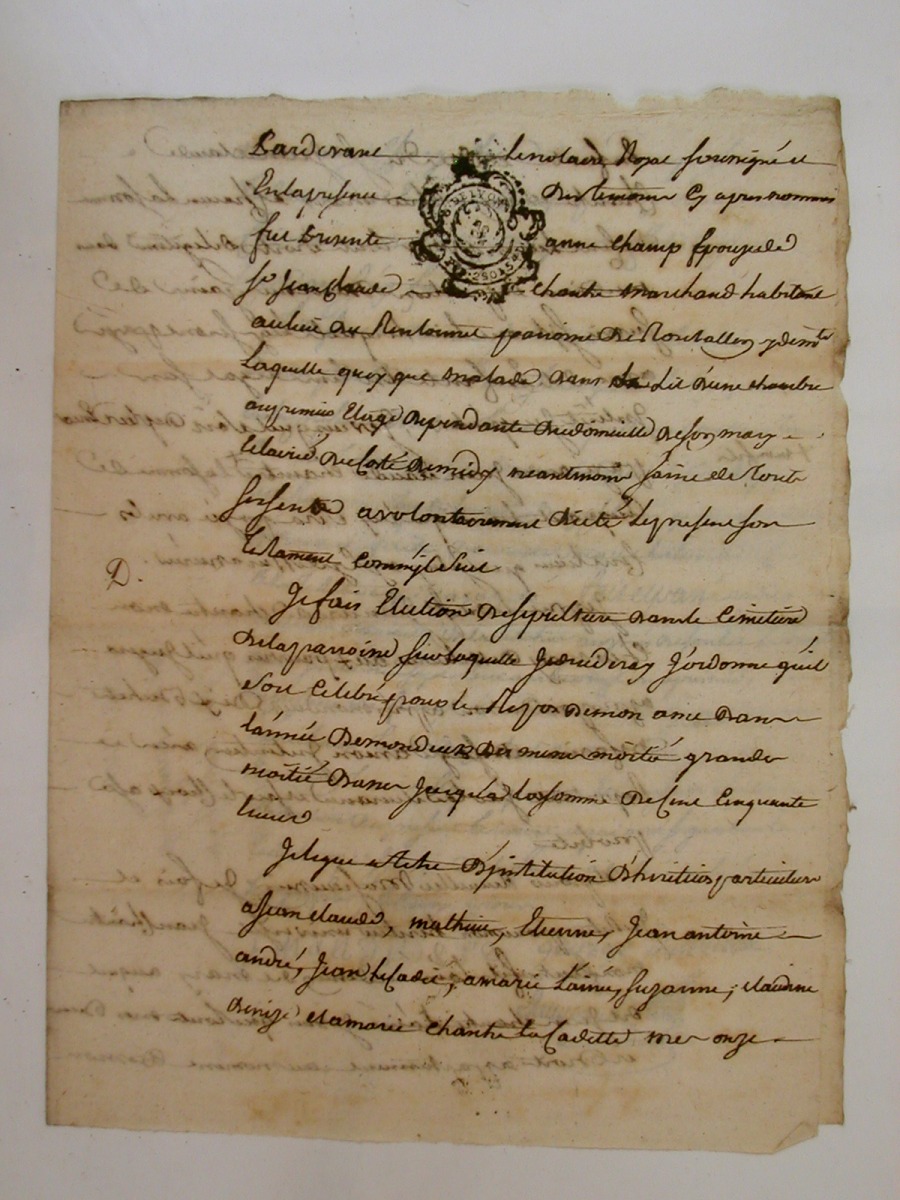 Pardevant le notaire Royal soussigné et
En la presence des temoins cy apres nommés
fut presente anne champ Epouse de
Sr Jean Claude chantre marchand habitant
au lieu du parroisse de
Laquelle quoy que malade dans un Lit d'une chambre
au premier Etage dependante du domicille de son mary
Eclairé de Coté de midy neantmoins saine de Tout
ses sens a volontairement dicté le present son
testament comm'il suit
D.
Je fais Election de sepulture dans le Cimetiere
De la parroisse sur laquelle je decederay J'ordonne qu'il
soit Celebré pour le Repos de mon ame dans
l'année de mon deces des messes moitié grandes
moitié basses jusqu'à la somme de Cent Cinquante
livres
Je legue a titre d'institution d'heritiers particuliers
a Jean Claude, mathieu, Etienne, Jean antoine
andré, Jean le Cadet, a marie L'ainée, Suzanne, claudine
Denize et a marie chantre la Cadette mes onze